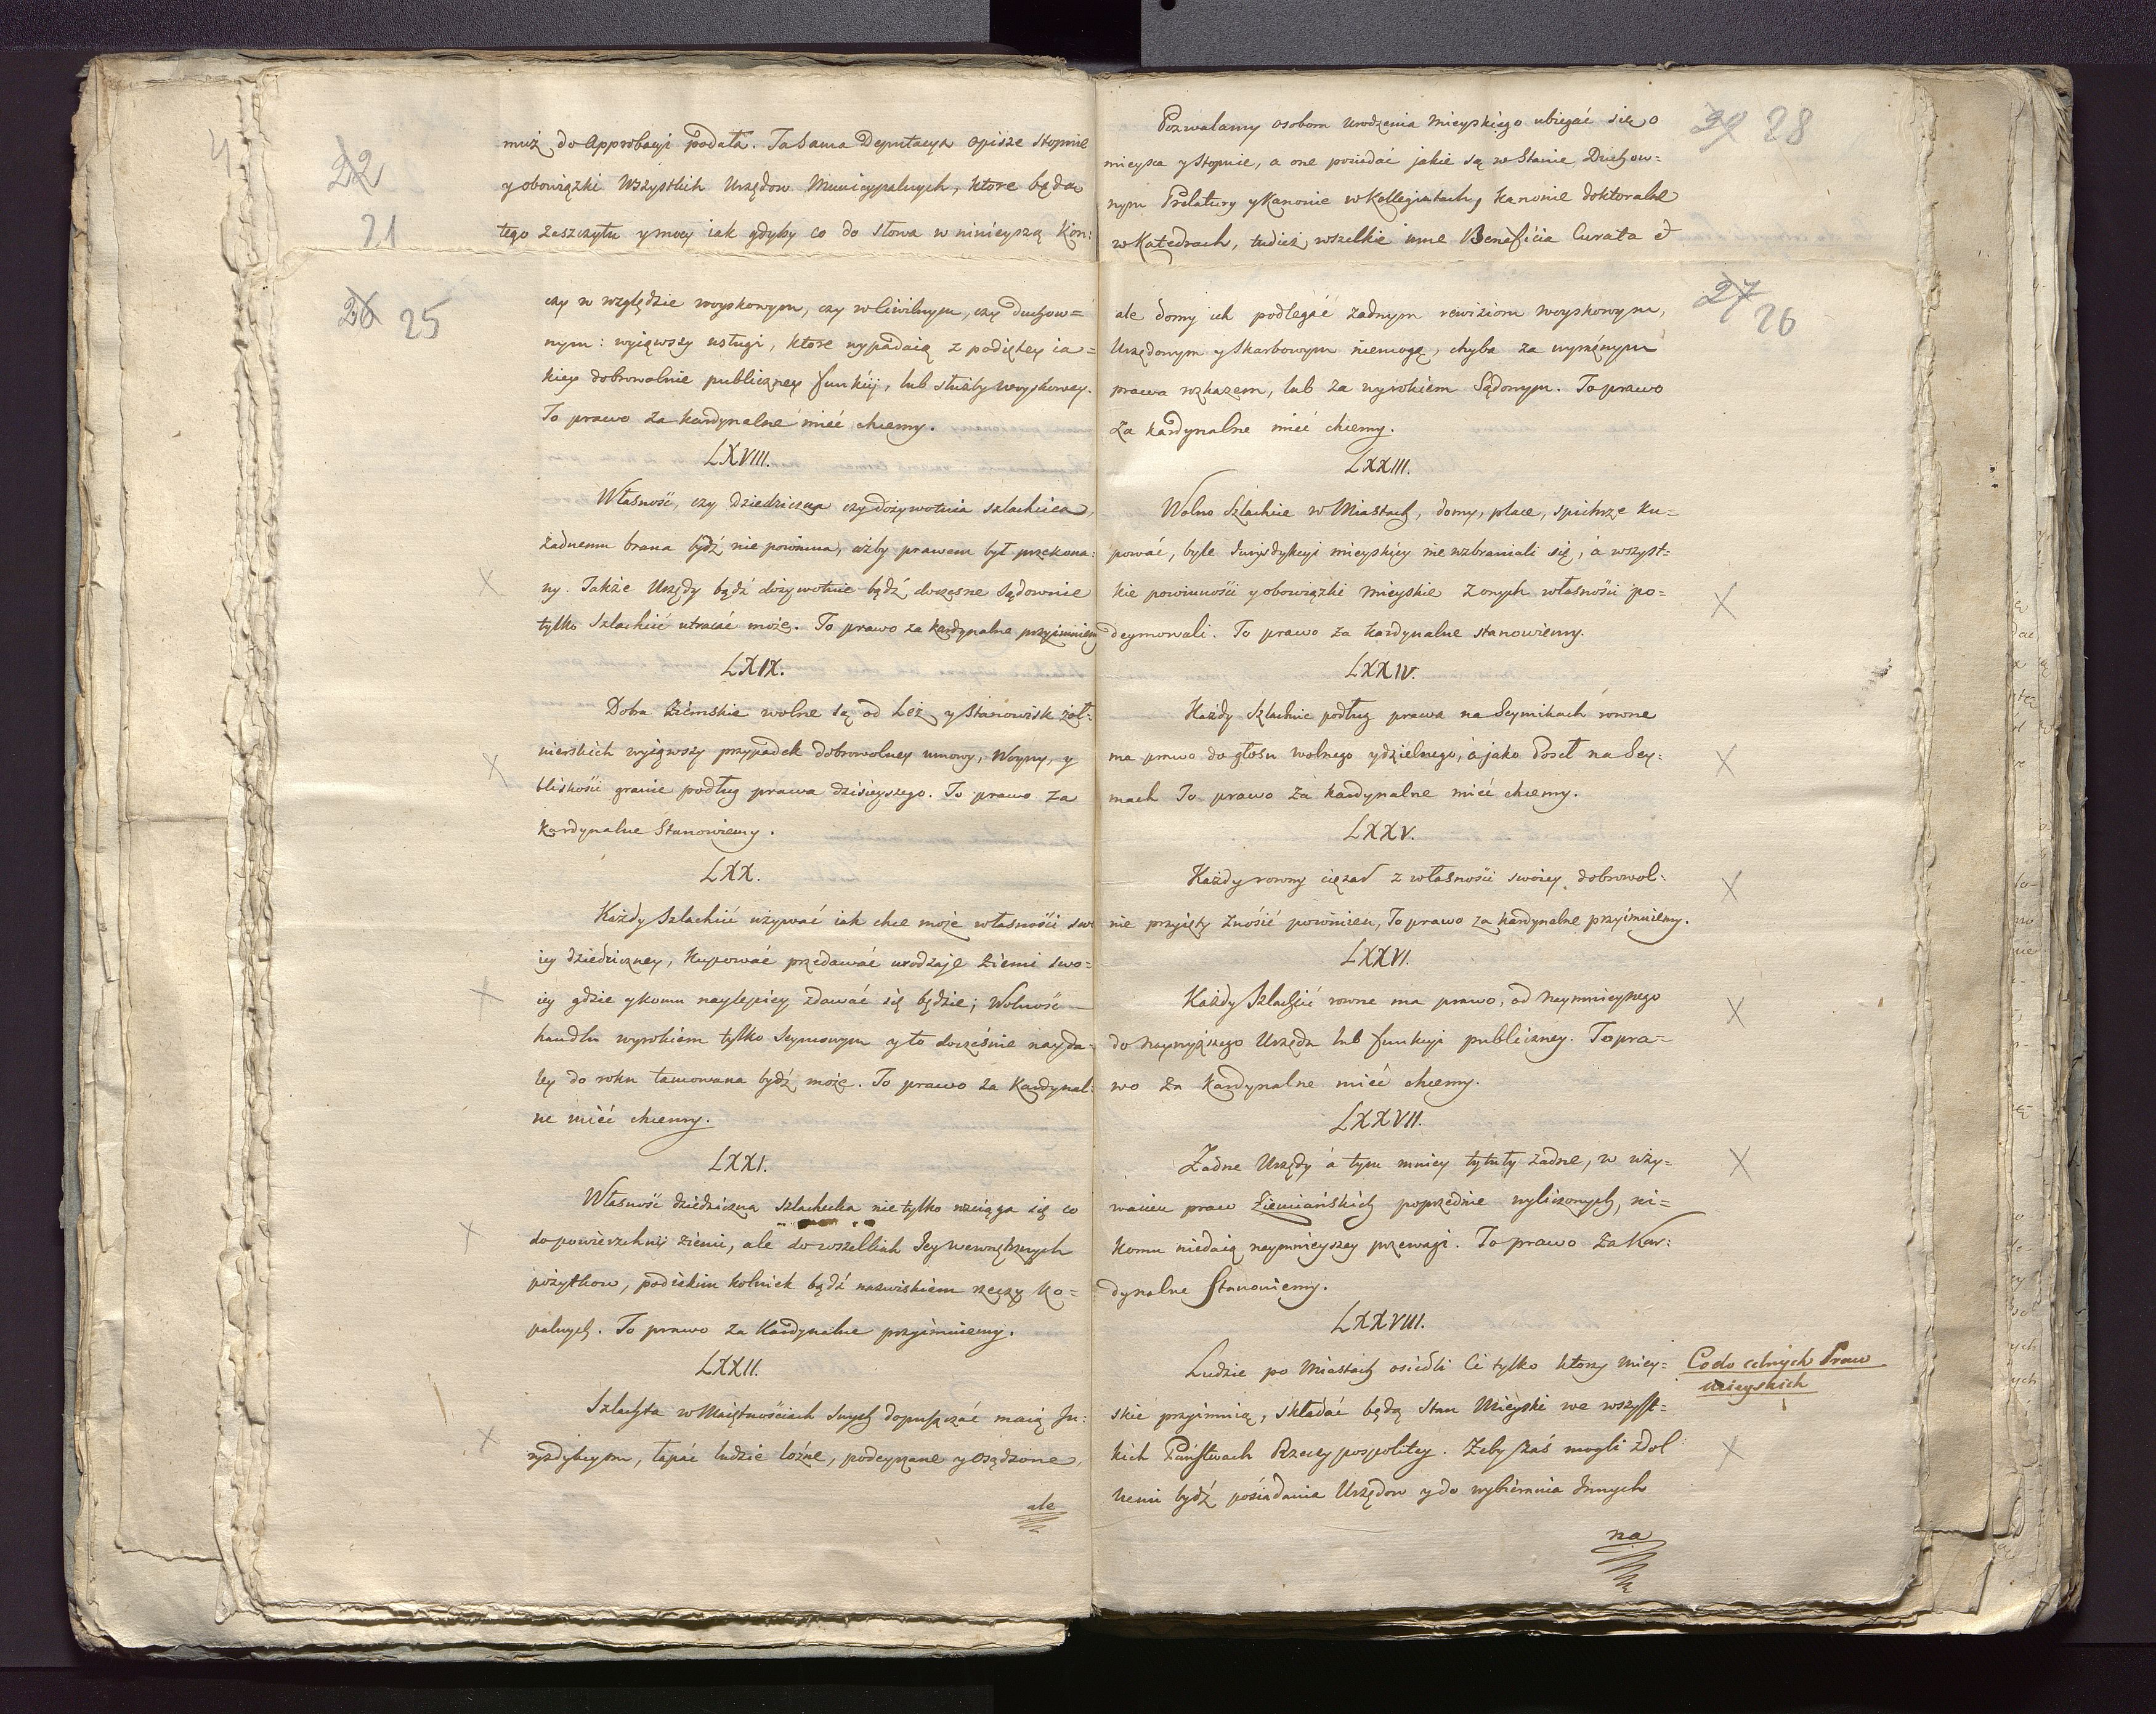 22
21
muż do Approbacyi podała. Ta Sama Deputacya opisze stopnie
y obowiązki Wszystkich Urzędow Municypalnych, ktore będą
tego Zaszczytu y mocy iak gdyby co do słowa w ninieyszą Kon:
26 25
czy w względzie woyskowym, czy w Ciwilnym, czy Duchow=
nym: wyiąwszy usługi, ktore wypadaią z podiętey ia=
kiey dobrowolnie publiczney funkcij, lub służby woyskowey.
To prawo za kardynalne mieć chcemy.
LXVIII.
Własność, czy dziedziczna czy dożywotnia szlachcica,
żadnemu brana bydź nie powinna, ażby prawem był przekona:
ny. Także Urzędy bądź dożywotnie bądź doczesne Sądownie
tylko Szlachcic utracać może. To prawo za kardynalne przyimuiemy
LXIX.
Dobra Ziemskie wolne są od Leż y Stanowisk żoł:
nierskich wyiąwszy przypadek dobrowolney umowy, Woyny, y
bliskości granic podług prawa dzisieyszego. To prawo za
kardynalne Stanowiemy.
LXX.
Każdy Szlachcic używać iak chce może własności swo
iey dziedziczney, Kupować przedawać urodzaje Ziemi swo=
iey gdzie y komu naylepiey zdawać się będzie; Wolność
handlu wyrokiem tylko Seymowym y to docześnie nayda
ley do roku tamowana bydź może. To prawo za Kardynal:
ne mieć chcemy.
LXXI.
Własność dziedziczna szlachecka nie tylko rozciąga się co
do powierzchnij Ziemi, ale do wszelkich Jey wewnętrznych
pożytkow, pod iakim kolwiek bądź nazwiskiem rzeczy Ko=
palnych. To prawo za Kardynalne przyimuiemy.
LXXII.
Szlachta w Maiętnościach Swych dopuszczać maią Ju:
ryzdykcyom, łapać ludzie loźne, podeyrzane y osądzone,
ale
Pozwalamy osobom urodzenia mieyskiego ubiegać się o
mieysca y Stopnie, a one posiadać jakie są w Stanie Duchow=
nym Prelatury y Kanonie w Kollegiatach, Kanonie doktoralne
w Katedrach, tudzież wszelkie inne Beneficia Curata et
28
27 26
ale domy ich podlegać żadnym rewiziom woyskowym,
Urzędowym y Skarbowym niemogą, chyba za wyraźnym
prawa rozkazem, lub za wyrokiem Sądowym. To prawo
za kardynalne mieć chcemy.
LXXIII.
Wolno Szlachcie w Miastach, domy, place, spichrze ku=
pować, byle Jurysdykcyi mieyskiey nie wzbraniali się, a wszyst=
kie powinności y obowiązki mieyskie z onych własności po=
deymowali. To prawo za kardynalne stanowiemy.
LXXIV.
Każdy Szlachcic podług prawa na Seymikach rowne
ma prawo do głosu wolnego y dzielnego, a jako Poseł na Sey:
mach To prawo za kardynalne mieć chcemy.
LXXV.
Każdy rowny ciężar z własności swoiey dobrowol:
nie przyięty znosić powinien, To prawo za kardynalne przyimuiemy.
LXXVI.
Każdy Szlachcic rowne ma prawo, od naymnieyszego
do naywyższego Urzędu lub funkcyi publiczney. To pra=
wo za kardynalne mieć chcemy.
LXXVII.
Żadne Urzędy a tym mniey tytuły żadne, w uży=
waniu praw Ziemiańskich poprzednie wyliczonych, ni=
komu niedaią naymnieyszey przewagi. To prawo za Kar:
dynalne Stanowiemy.
LXXVIII.
Ludzie po Miastach osiedli Ci tylko ktorzy miey=
skie przyimuią, składać będą Stan Mieyski we wszyst=
kich Państwach Rzeczypospolitey. Zeby zaś mogli zdol
nemi bydź posiadania Urzędow y do wybierania Innych
na
Co do Praw
mieyskich